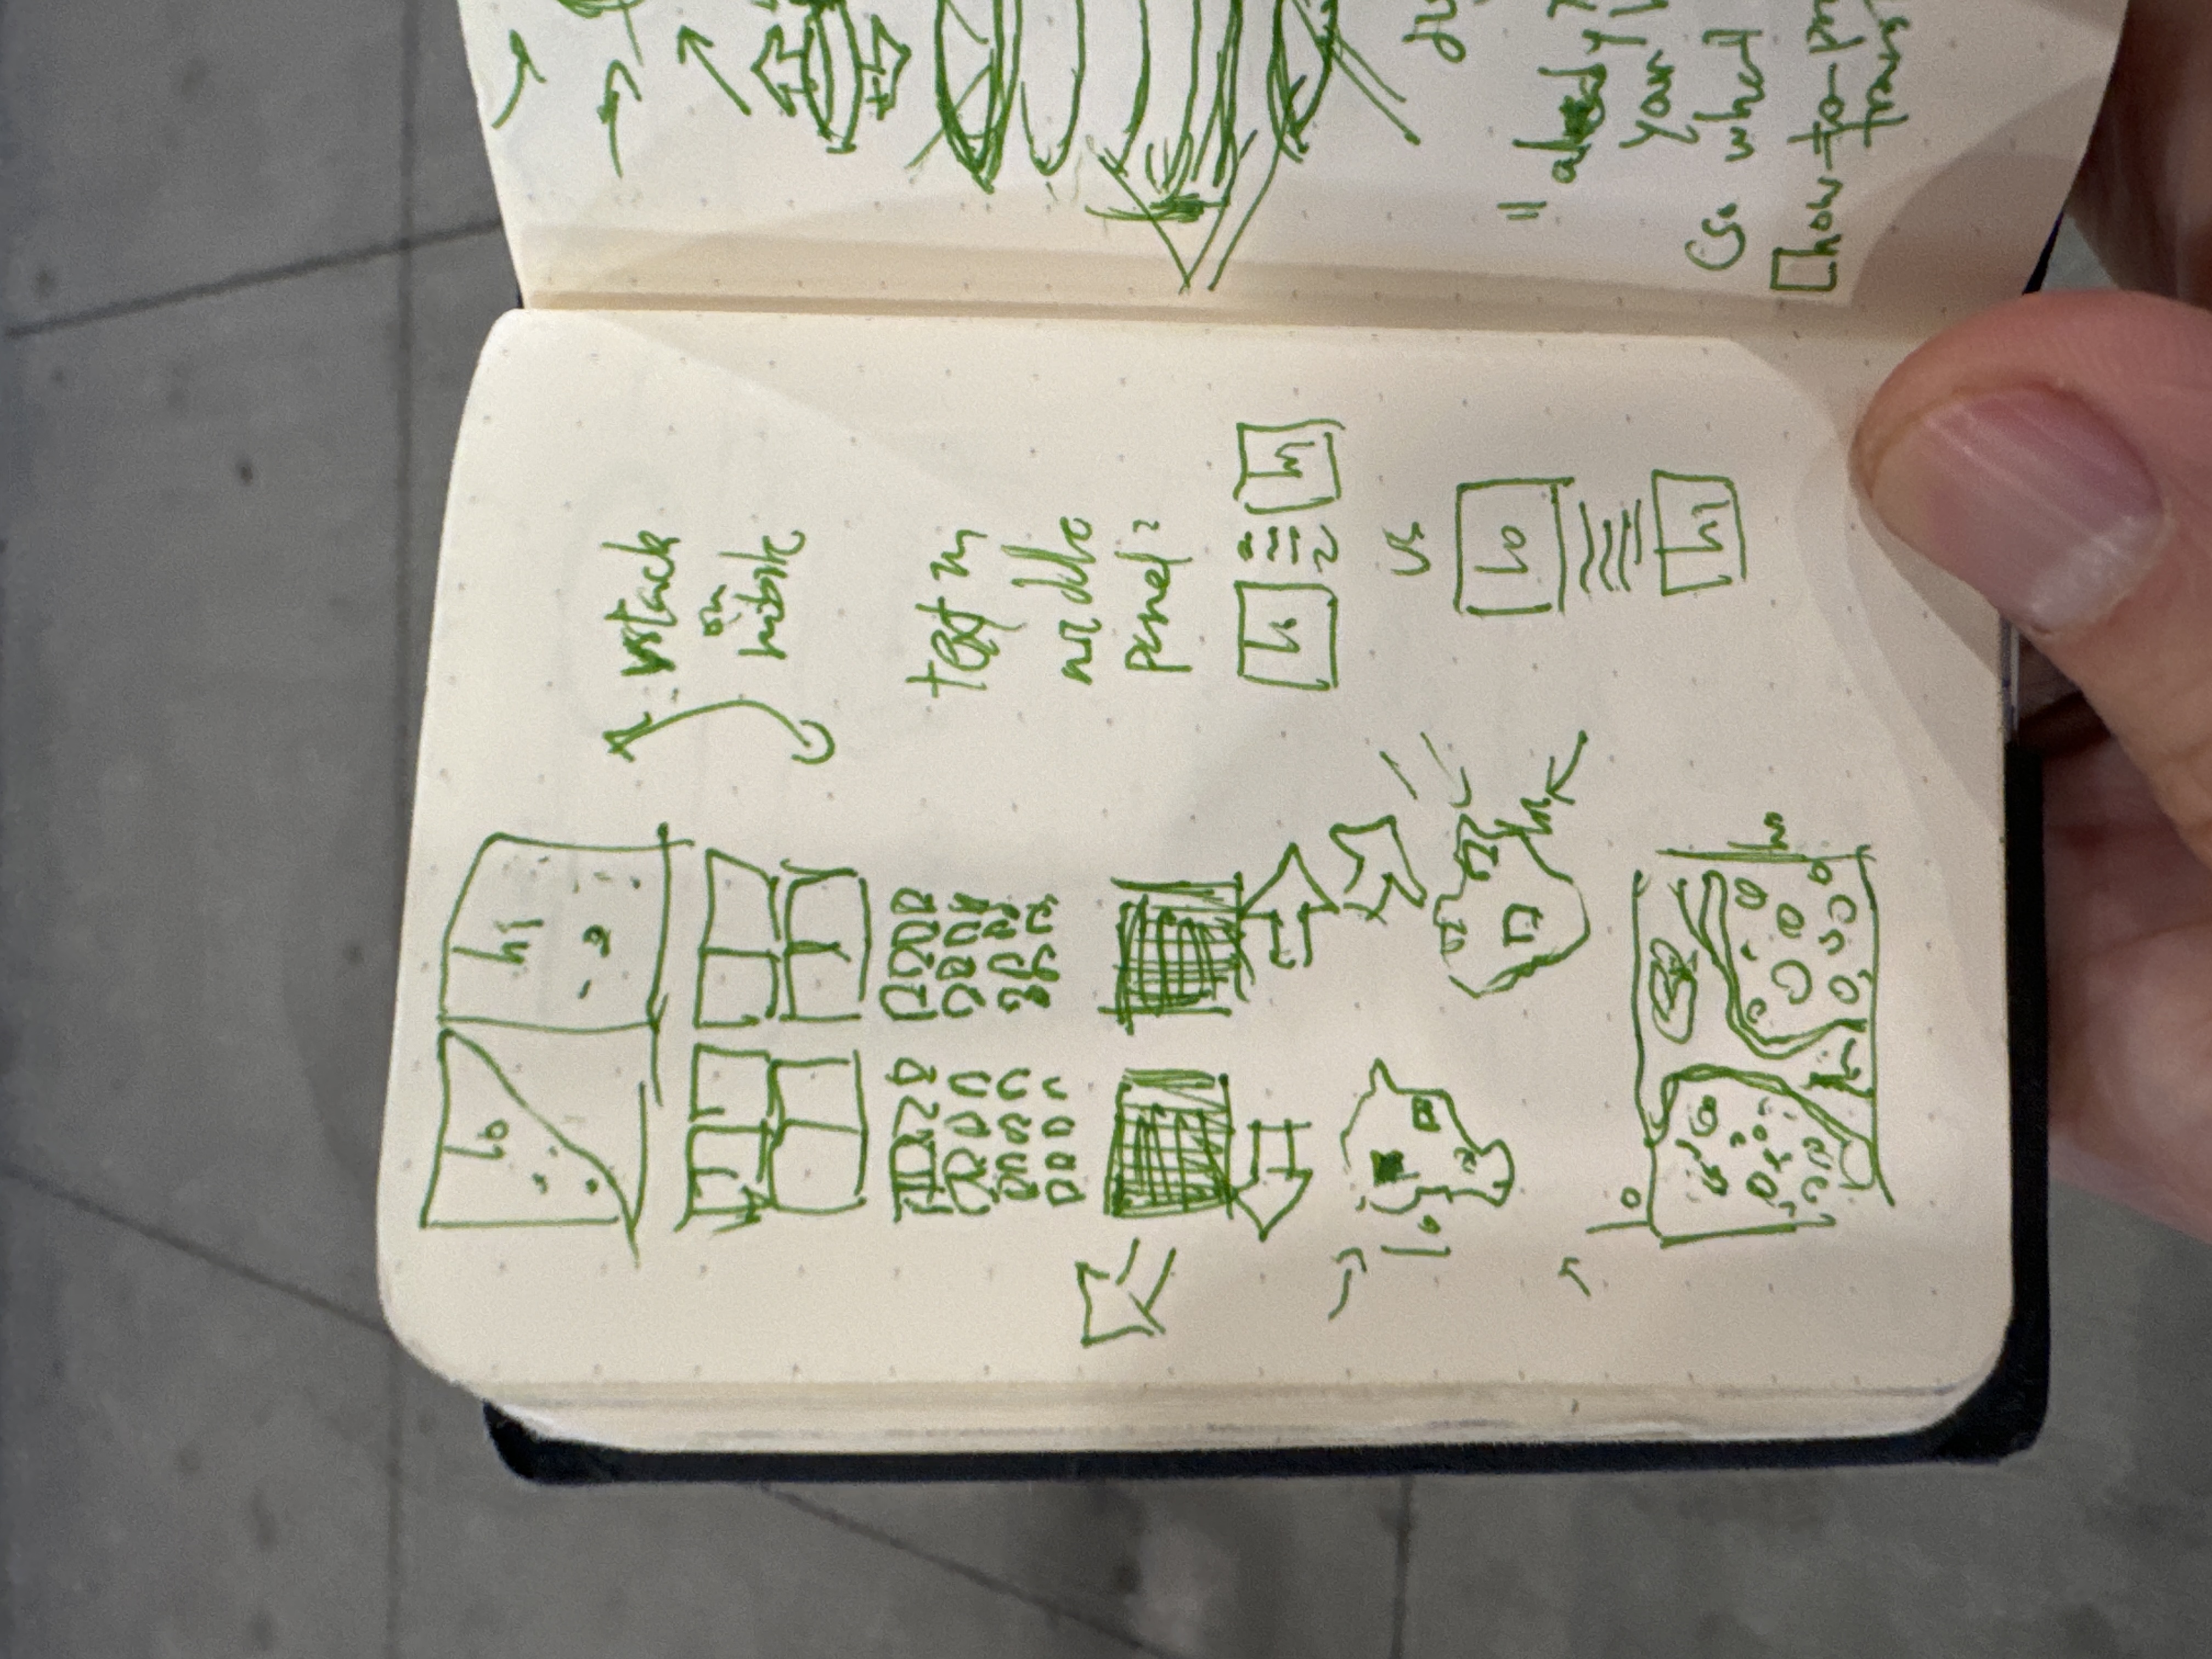 lo
hi
vstack
on
mobile
text in
middle
panel?
lo
hi
vs
lo
hi
lo
hi
lo
hi
"already
your
(so what
how-to-